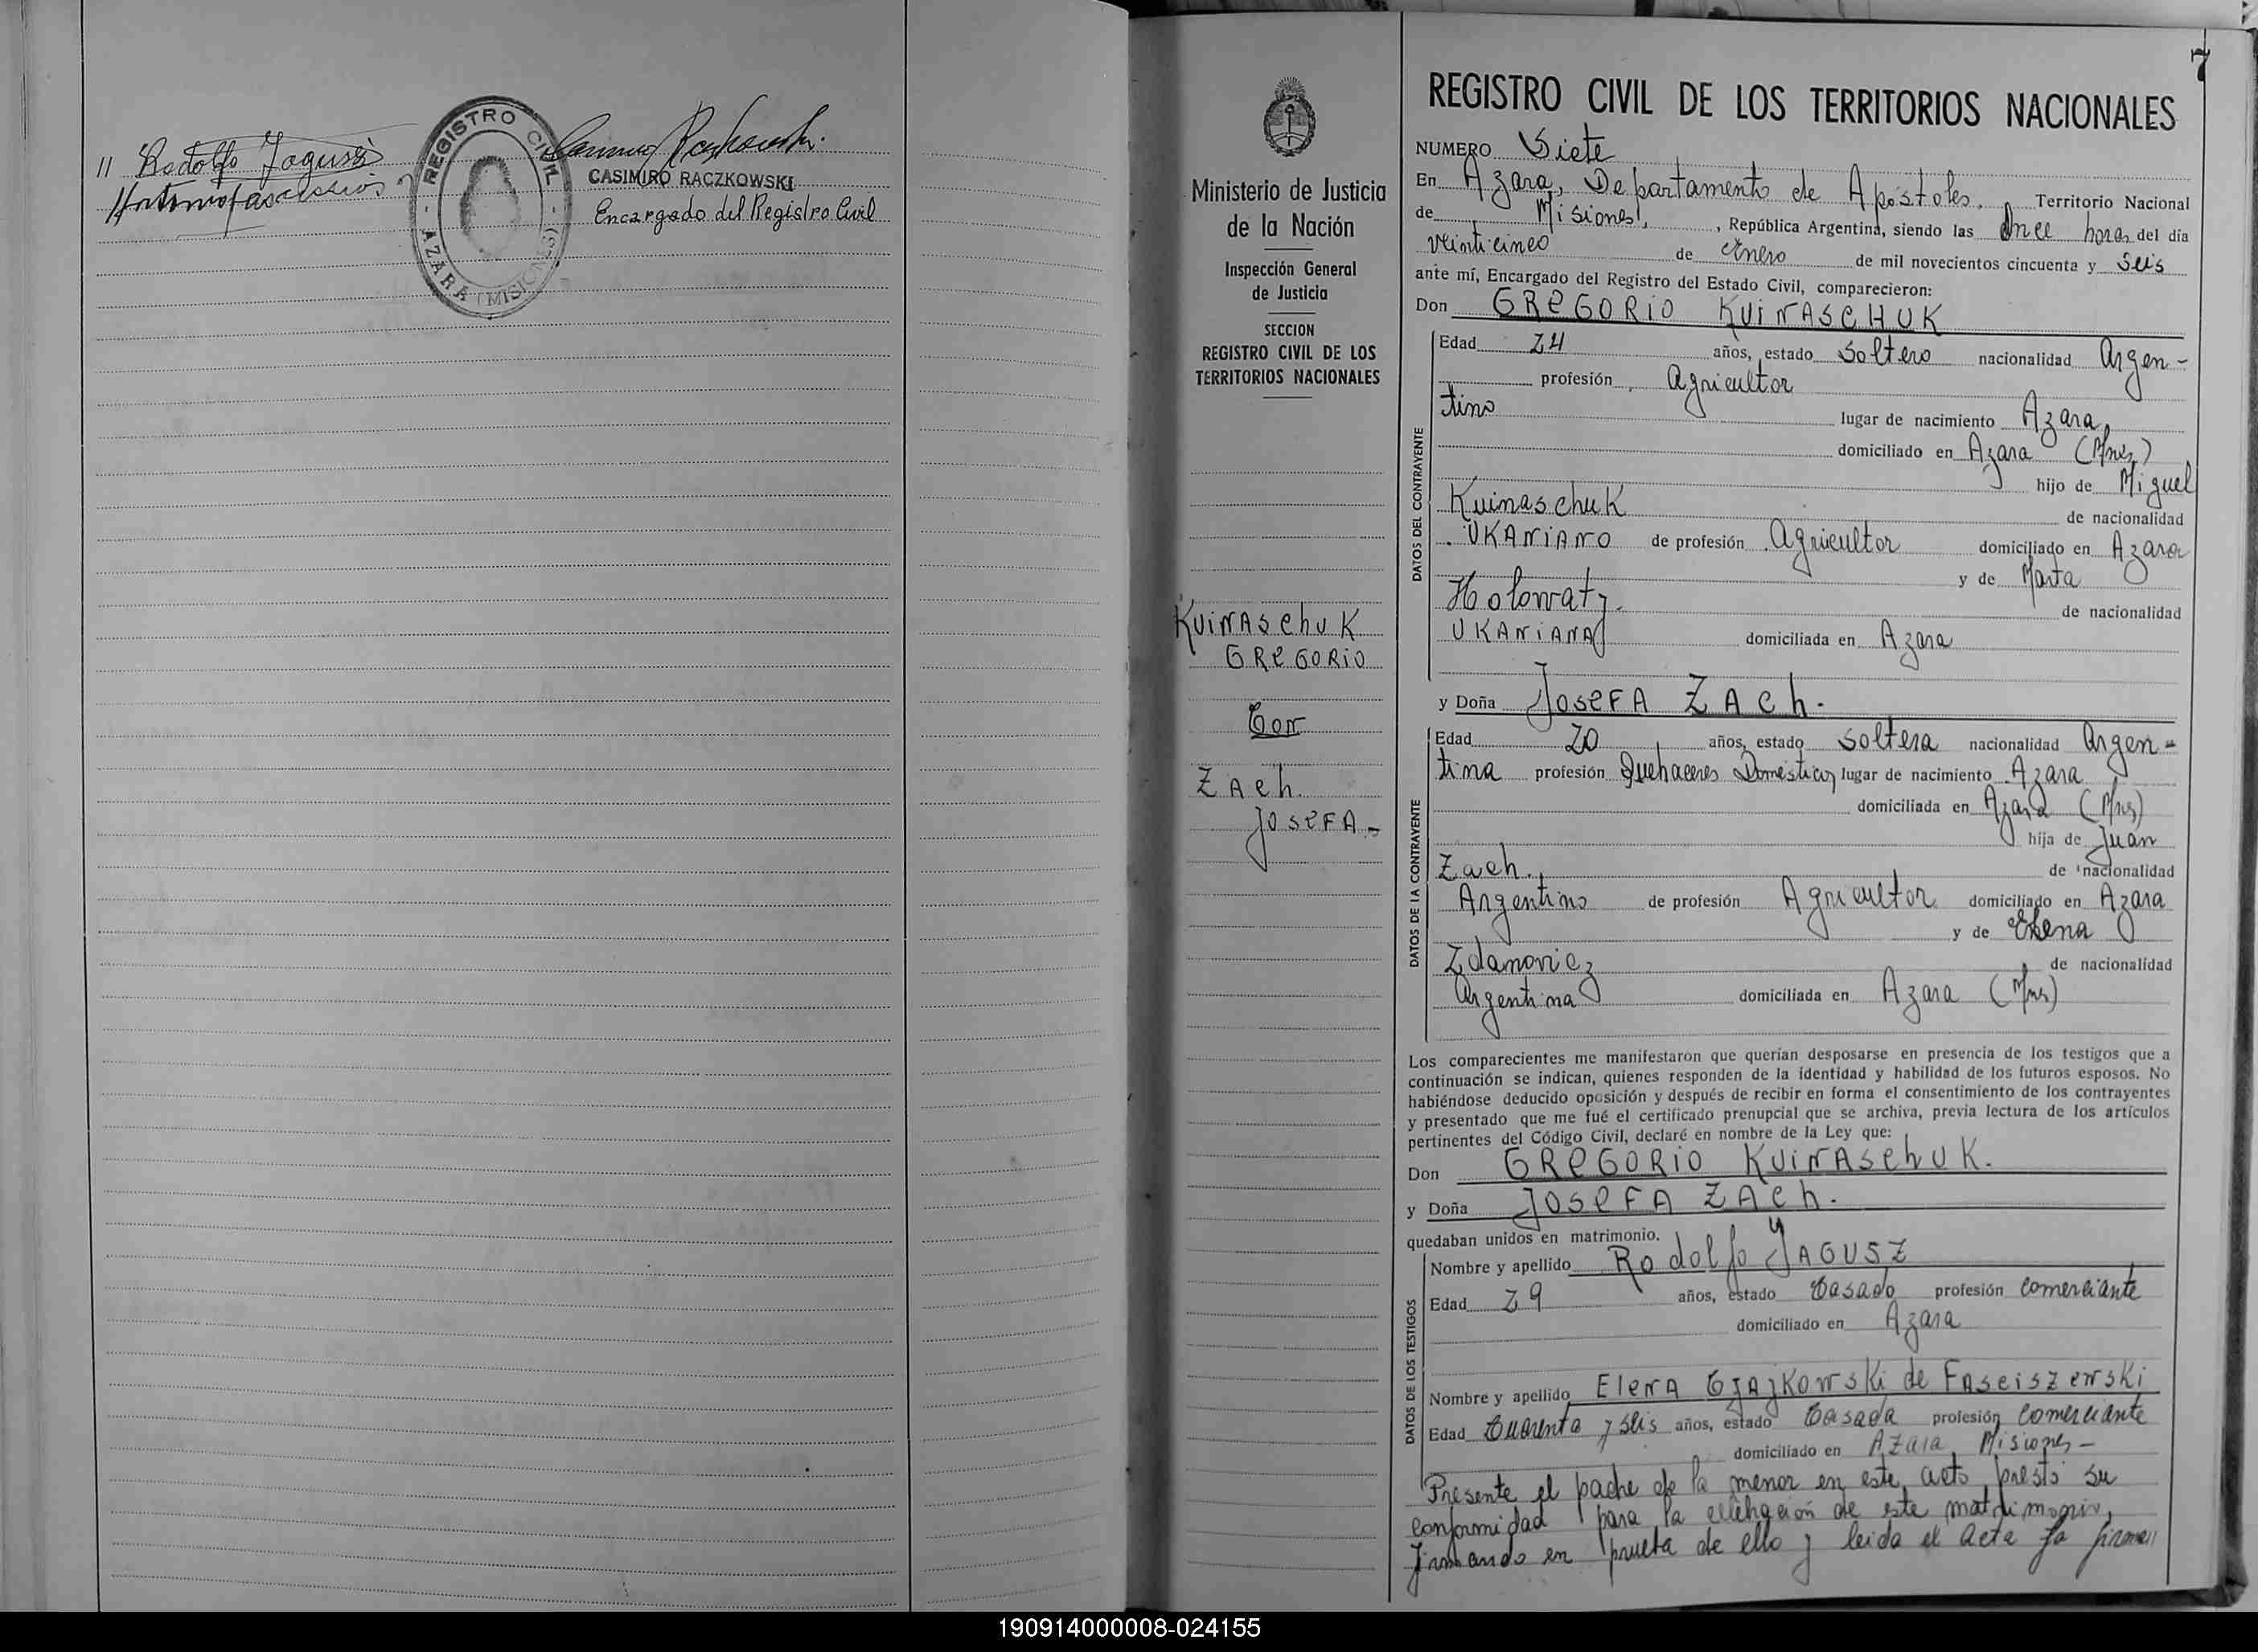 11 Rodolfo Jagusz
REGISTRO CIVIL
- AZARA (MISIONES) -
CASIMIRO RACZKOWSKI
Encargado del Registro Civil
7
Ministerio de Justicia
de la Nación
Inspección General
de Justicia
SECCION
REGISTRO CIVIL DE LOS
TERRITORIOS NACIONALES
KUINASCHUK
GREGORIO
Con
ZACH
JOSEFA.-
REGISTRO CIVIL DE LOS TERRITORIOS NACIONALES
NUMERO Siete
En Azara, Departamento de Apóstoles, Territorio Nacional
de Misiones, República Argentina, siendo las Once horas del día
veinticinco de Enero de mil novecientos cincuenta y seis
ante mí, Encargado del Registro del Estado Civil, comparecieron:
Don GREGORIO KUINASCHUK
DATOS DEL CONTRAYENTE
Edad 24 años, estado Soltero nacionalidad Argen-
profesión Agricultor
tino lugar de nacimiento Azara
domiciliado en Azara (Mnes)
hijo de Miguel
Kuinaschuk de nacionalidad
UKANIANO de profesión Agricultor domiciliado en Azara
y de Marta
Holowaty. de nacionalidad
UKANIANA domiciliada en Azara
y Doña JOSEFA ZACH.
DATOS DE LA CONTRAYENTE
Edad 20 años, estado Soltera nacionalidad Argen-
tina profesión Quehaceres Domésticos lugar de nacimiento Azara
domiciliada en Azara (Mnes)
hija de Juan
Zach. de nacionalidad
Argentino de profesión Agricultor domiciliado en Azara
y de Elena
Zdanovicz de nacionalidad
Argentina domiciliada en Azara (Mnes)
Los comparecientes me manifestaron que querían desposarse en presencia de los testigos que a
continuación se indican, quienes responden de la identidad y habilidad de los futuros esposos. No
habiéndose deducido oposición y después de recibir en forma el consentimiento de los contrayentes
y presentado que me fué el certificado prenupcial que se archiva, previa lectura de los artículos
pertinentes del Código Civil, declaré en nombre de la Ley que:
Don GREGORIO KUINASCHUK.
y Doña JOSEFA ZACH.
quedaban unidos en matrimonio.
DATOS DE LOS TESTIGOS
Nombre y apellido Rodolfo JAGUSZ
Edad 29 años, estado Casado profesión comerciante
domiciliado en Azara
Nombre y apellido Elena CZAJKOWSKI de FASCISZEWSKI
Edad Cuarenta y seis años, estado Casada profesión Comerciante
domiciliado en Azara, Misiones-
Presente el padre de la menor en este acto prestó su
conformidad para la de este matrimonio,
firmando en prueba de ello y leida el acta la firman
190914000008-024155